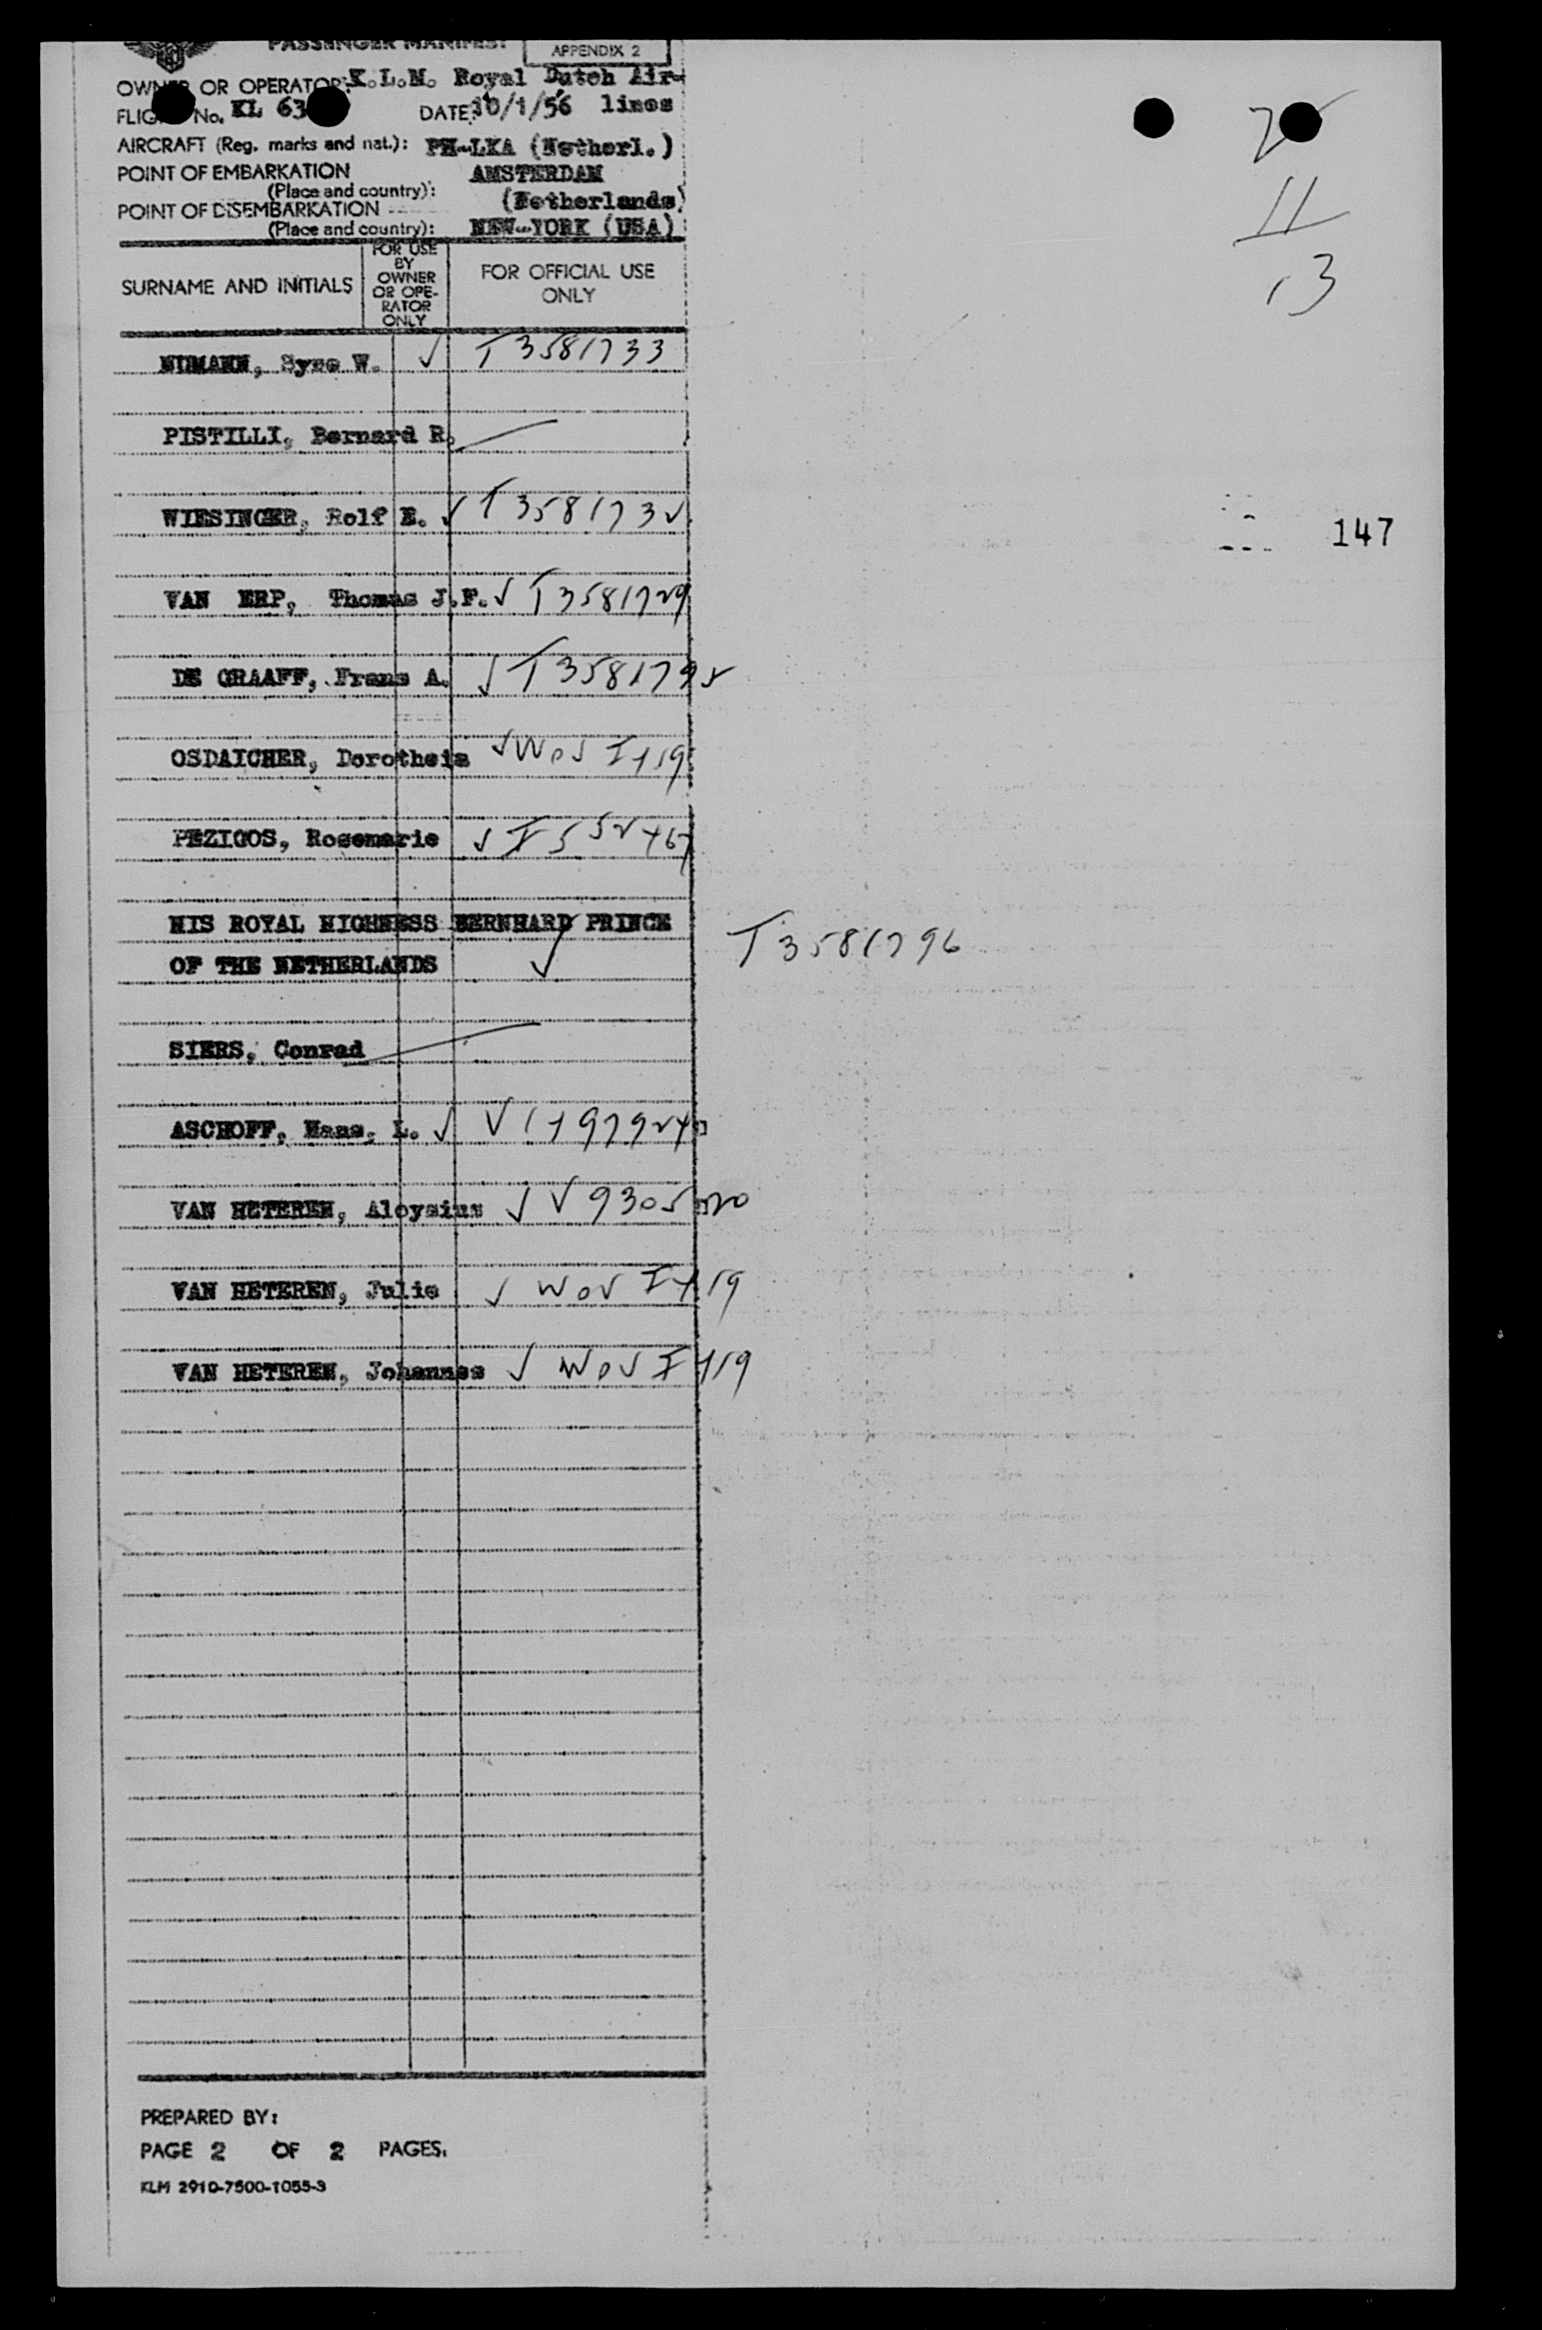 PASSENGER MANIFEST
APPENDIX 2
OWNER OR OPERATOR: K.L.M. Royal Dutch Air-
FLIGHT No. KL 63 DATE: 10/1/56 lines
AIRCRAFT (Reg. marks and nat.): PH-LKA (Netherl.)
POINT OF EMBARKATION AMSTERDAM
(Place and country): (Netherlands)
POINT OF DISEMBARKATION
(Place and country): NEW-YORK (USA)
SURNAME AND INITIALS
FOR USE
BY
OWNER
OR OPE-
RATOR
ONLY
FOR OFFICIAL USE
ONLY
11
13
147
NIMANN, Syse W. T3581733
PISTILLI, Bernard R.
WIESINGER, Rolf E. T3581732
VAN ERP, Thomas J.F. T3581729
DE GRAAFF, Frans A. T3581795
OSDAICHER, Dorotheia
PEZIGOS, Rosemarie
HIS ROYAL HIGHNESS BERNHARD PRINCE
OF THE NETHERLANDS T3581796
SIERS, Conrad
ASCHOFF, Hans, L.
VAN HETEREN, Aloysius
VAN HETEREN, Julie
VAN HETEREN, Johannes
PREPARED BY:
PAGE 2 OF 2 PAGES.
KLM 2910-7500-1055-3